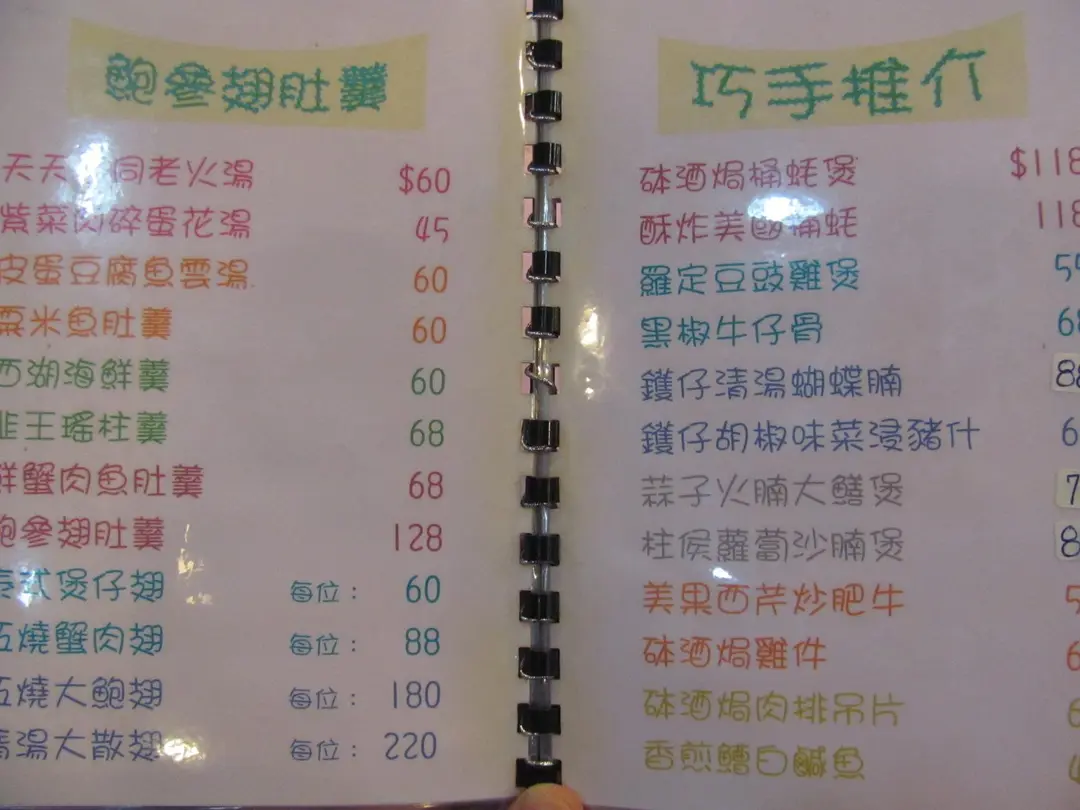 鮑參翅肚羹
天天 同老火湯 $60
紫菜肉碎蛋花湯 45
皮蛋豆腐魚雲湯 60
粟米魚肚羹 60
西湖海鮮羹 60
韭王瑤柱羹 68
鮮蟹肉魚肚羹 68
鮑參翅肚羹 128
泰式煲仔翅 每位： 60
紅燒蟹肉翅 每位： 88
紅燒大鮑翅 每位： 180
清湯大散翅 每位： 220
巧手推介
砵酒焗桶蚝煲 $118
酥炸美國桶蚝 118
羅定豆豉雞煲
黑椒牛仔骨
鑊仔清湯蝴蝶腩
鑊仔胡椒味菜浸豬什
蒜子火腩大鱔煲
柱侯蘿蔔沙腩煲
美果西芹炒肥牛
砵酒焗雞件
砵酒焗肉排吊片
香煎鰽白鹹魚